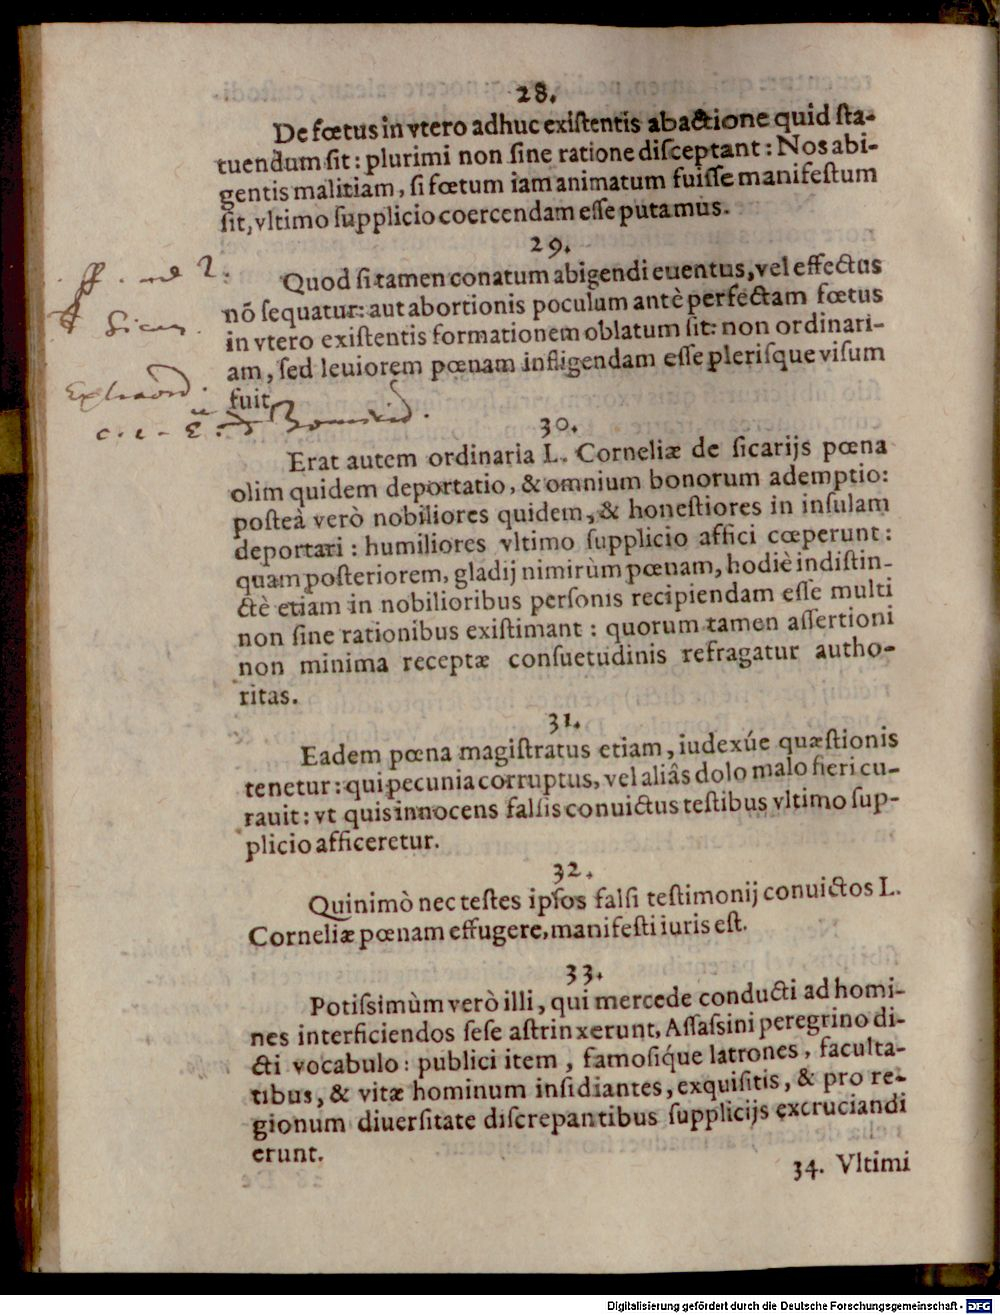 28.
De fœtus in vtero adhuc existentis abactione quid sta-
tuendum sit: plurimi non sine ratione disceptant: Nos abi-
gentis malitiam, si fœtum iam animatum fuisse manifestum
sit, vltimo supplicio coercendam esse putamus.
29.
Quod si tamen conatum abigendi euentus, vel effectus
nō sequatur: aut abortionis poculum antè perfectam fœtus
in vtero existentis formationem oblatum sit: non ordinari-
am, sed leuiorem pœnam infligendam esse plerisque visum
fuit.
30.
Erat autem ordinaria L. Corneliæ de sicarijs pœna
olim quidem deportatio, & omnium bonorum ademptio:
posteà verò nobiliores quidem, & honestiores in insulam
deportari: humiliores vltimo supplicio affici cœperunt:
quam posteriorem, gladij nimirùm pœnam, hodiè indistin-
ctè etiam in nobilioribus personis recipiendam esse multi
non sine rationibus existimant: quorum tamen assertioni
non minima receptæ consuetudinis refragatur autho-
ritas.
31.
Eadem pœna magistratus etiam, iudexúe quæstionis
tenetur: qui pecunia corruptus, vel aliâs dolo malo fieri cu-
rauit: vt quis innocens falsis conuictus testibus vltimo sup-
plicio afficeretur.
32.
Quinimò nec testes ipsos falsi testimonij conuictos L.
Corneliæ pœnam effugere, manifesti iuris est.
33.
Potissimùm verò illi, qui mercede conducti ad homi-
nes interficiendos sese astrinxerunt, Assassini peregrino di-
cti vocabulo: publici item, famosíque latrones, faculta-
tibus, & vitæ hominum insidiantes, exquisitis, & pro re-
gionum diuersitate discrepantibus supplicijs excruciandi
erunt.
34. Vltimi
ad l.
Sicar.
Extraord.
Digitalisierung gefördert durch die Deutsche Forschungsgemeinschaft - DFG